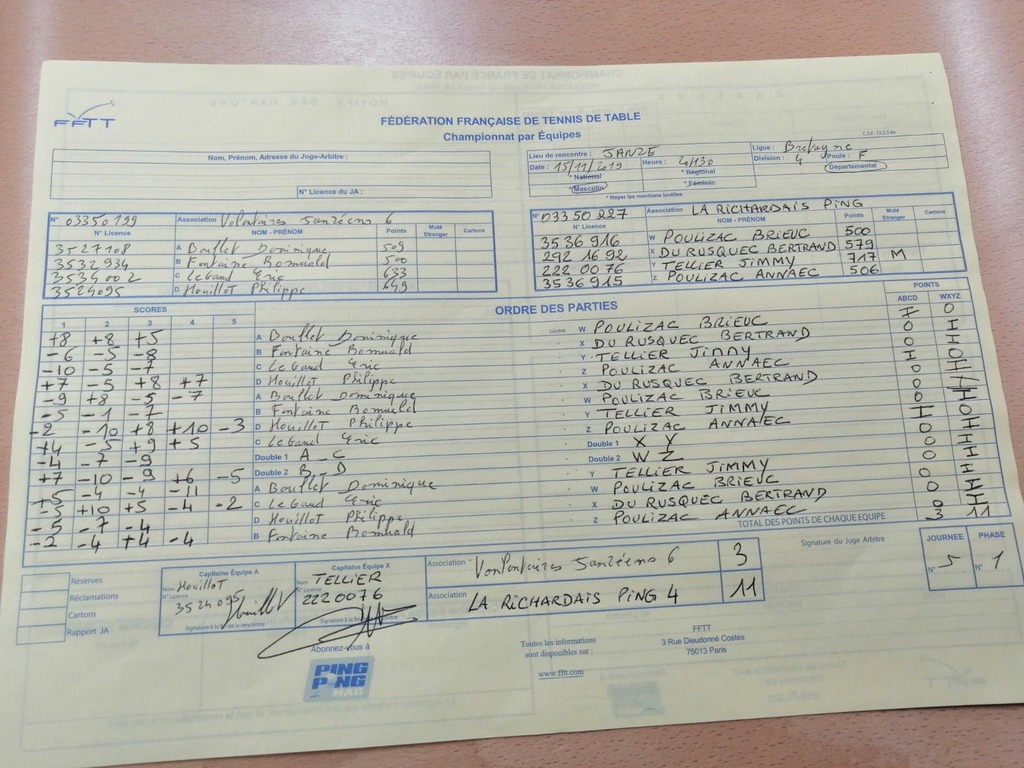 FFTT
FÉDÉRATION FRANÇAISE DE TENNIS DE TABLE
Championnat par Équipes
C.S.F. 13.2.0.4a
Nom, Prénom, Adresse du Juge-Arbitre :
N° Licence du JA :
Lieu de rencontre : JANZE Ligue : Bretagne
Date : 15/11/2019 Heure : 20H30 Division : 4 Poule : F
* National * Régional Départemental
Masculin * Féminin
* Rayer les mentions inutiles
N° 03350199 Association Volontaires Janzéens 6
N° Licence NOM - PRÉNOM Points Muté Etranger Cartons
3527108 A Boullet Dominique 509
3532934 B Fontaine Romuald 500
3534002 C Legaud Eric 633
3524095 D Houillot Philippe 649
N° 03350227 Association LA RiCHARDAIS PiNG
N° Licence NOM - PRÉNOM Points Muté Etranger Cartons
3536916 W POULiZAC BRiEUC 500
292 16 92 X DU RUSQUEC BERTRAND 579
222 00 76 Y TELLIER JiMMY 717 M
3536915 Z POULiZAC ANNAEC 506
SCORES ORDRE DES PARTIES POINTS
1 2 3 4 5 ABCD WXYZ
+8 +8 +5 A Boullet Dominique contre W POULIZAC BRIEUC I 0
-6 -5 -8 B Fontaine Romuald X DU RUSQUEC BERTRAND 0 I
-10 -5 -7 C Legaud Eric Y TELLIER JiMMY 0 I
+7 -5 +8 +7 D Houillot Philippe Z POULIZAC ANNAEC I 0
-9 +8 -5 -7 A Boullet Dominique X DU RUSQUEC BERTRAND 0 I
-5 -1 -7 B Fontaine Romuald W POULiZAC BRiEUC 0 I
-2 -10 +8 +10 -3 D Houillot Philippe Y TELLIER JIMMY 0 I
+4 -5 +9 +5 C Legaud Eric Z POULIZAC ANNAEC I 0
-4 -7 -9 Double 1 A_C Double 1 X Y 0 I
+7 -10 -9 +6 -5 Double 2 B_D Double 2 W Z 0 I
+5 -4 -4 -11 A Boullet Dominique Y TELLIER JiMMY 0 I
-5 +10 +5 -4 -2 C Legaud Eric W POULiZAC BRiEUC 0 I
-5 -7 -4 D Houillot Philippe X DU RUSQUEC BERTRAND 0 I
-2 -4 +4 -4 B Fontaine Romuald Z POULiZAC ANNAEC 0 I
TOTAL DES POINTS DE CHAQUE EQUIPE 3 11
Réserves
Réclamations
Cartons
Rapport JA
Capitaine Équipe A
Nom Houillot
N° Licence 3524095
Signature à la fin de la rencontre
Capitaine Équipe X
Nom TELLiER
N° Licence 2220076
Signature à la fin de la rencontre
Association Volontaires Janzéens 6 3
Association LA RiCHARDAIS PiNG 4 11
Signature du Juge Arbitre
JOURNEE PHASE
N° 5 N° 1
Abonnez-vous à
PING PONG MAG
Toutes les informations
sont disponibles sur :
www.fftt.com
FFTT
3 Rue Dieudonné Costes
75013 Paris